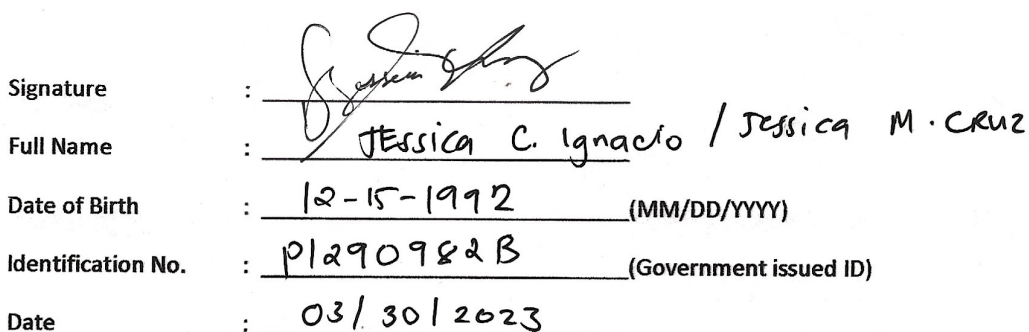 Signature :
Full Name : JEssica C. Ignacio / Jessica M. CRUZ
Date of Birth : 12-15-1992 (MM/DD/YYYY)
Identification No. : P1290982B (Government issued ID)
Date : 03/30/2023